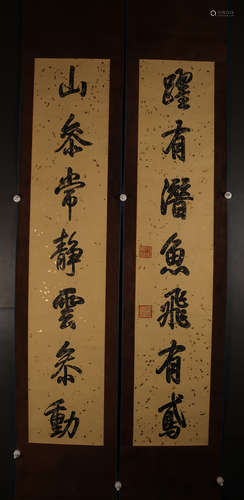 躍有潛魚飛有鳶
山叅常靜雲叅動